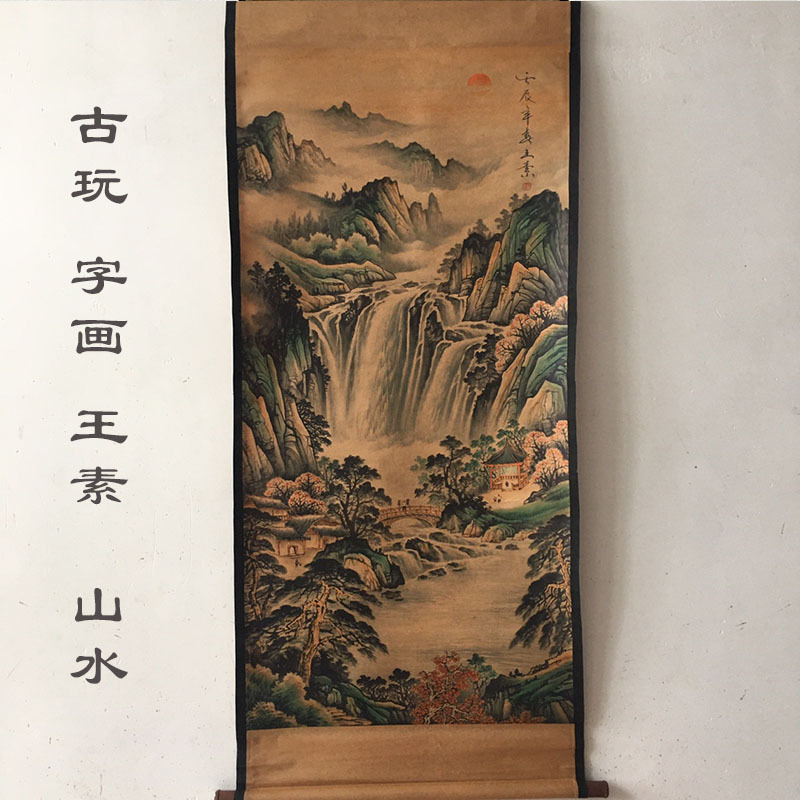 古玩 字画 王素 山水
辰年春王素